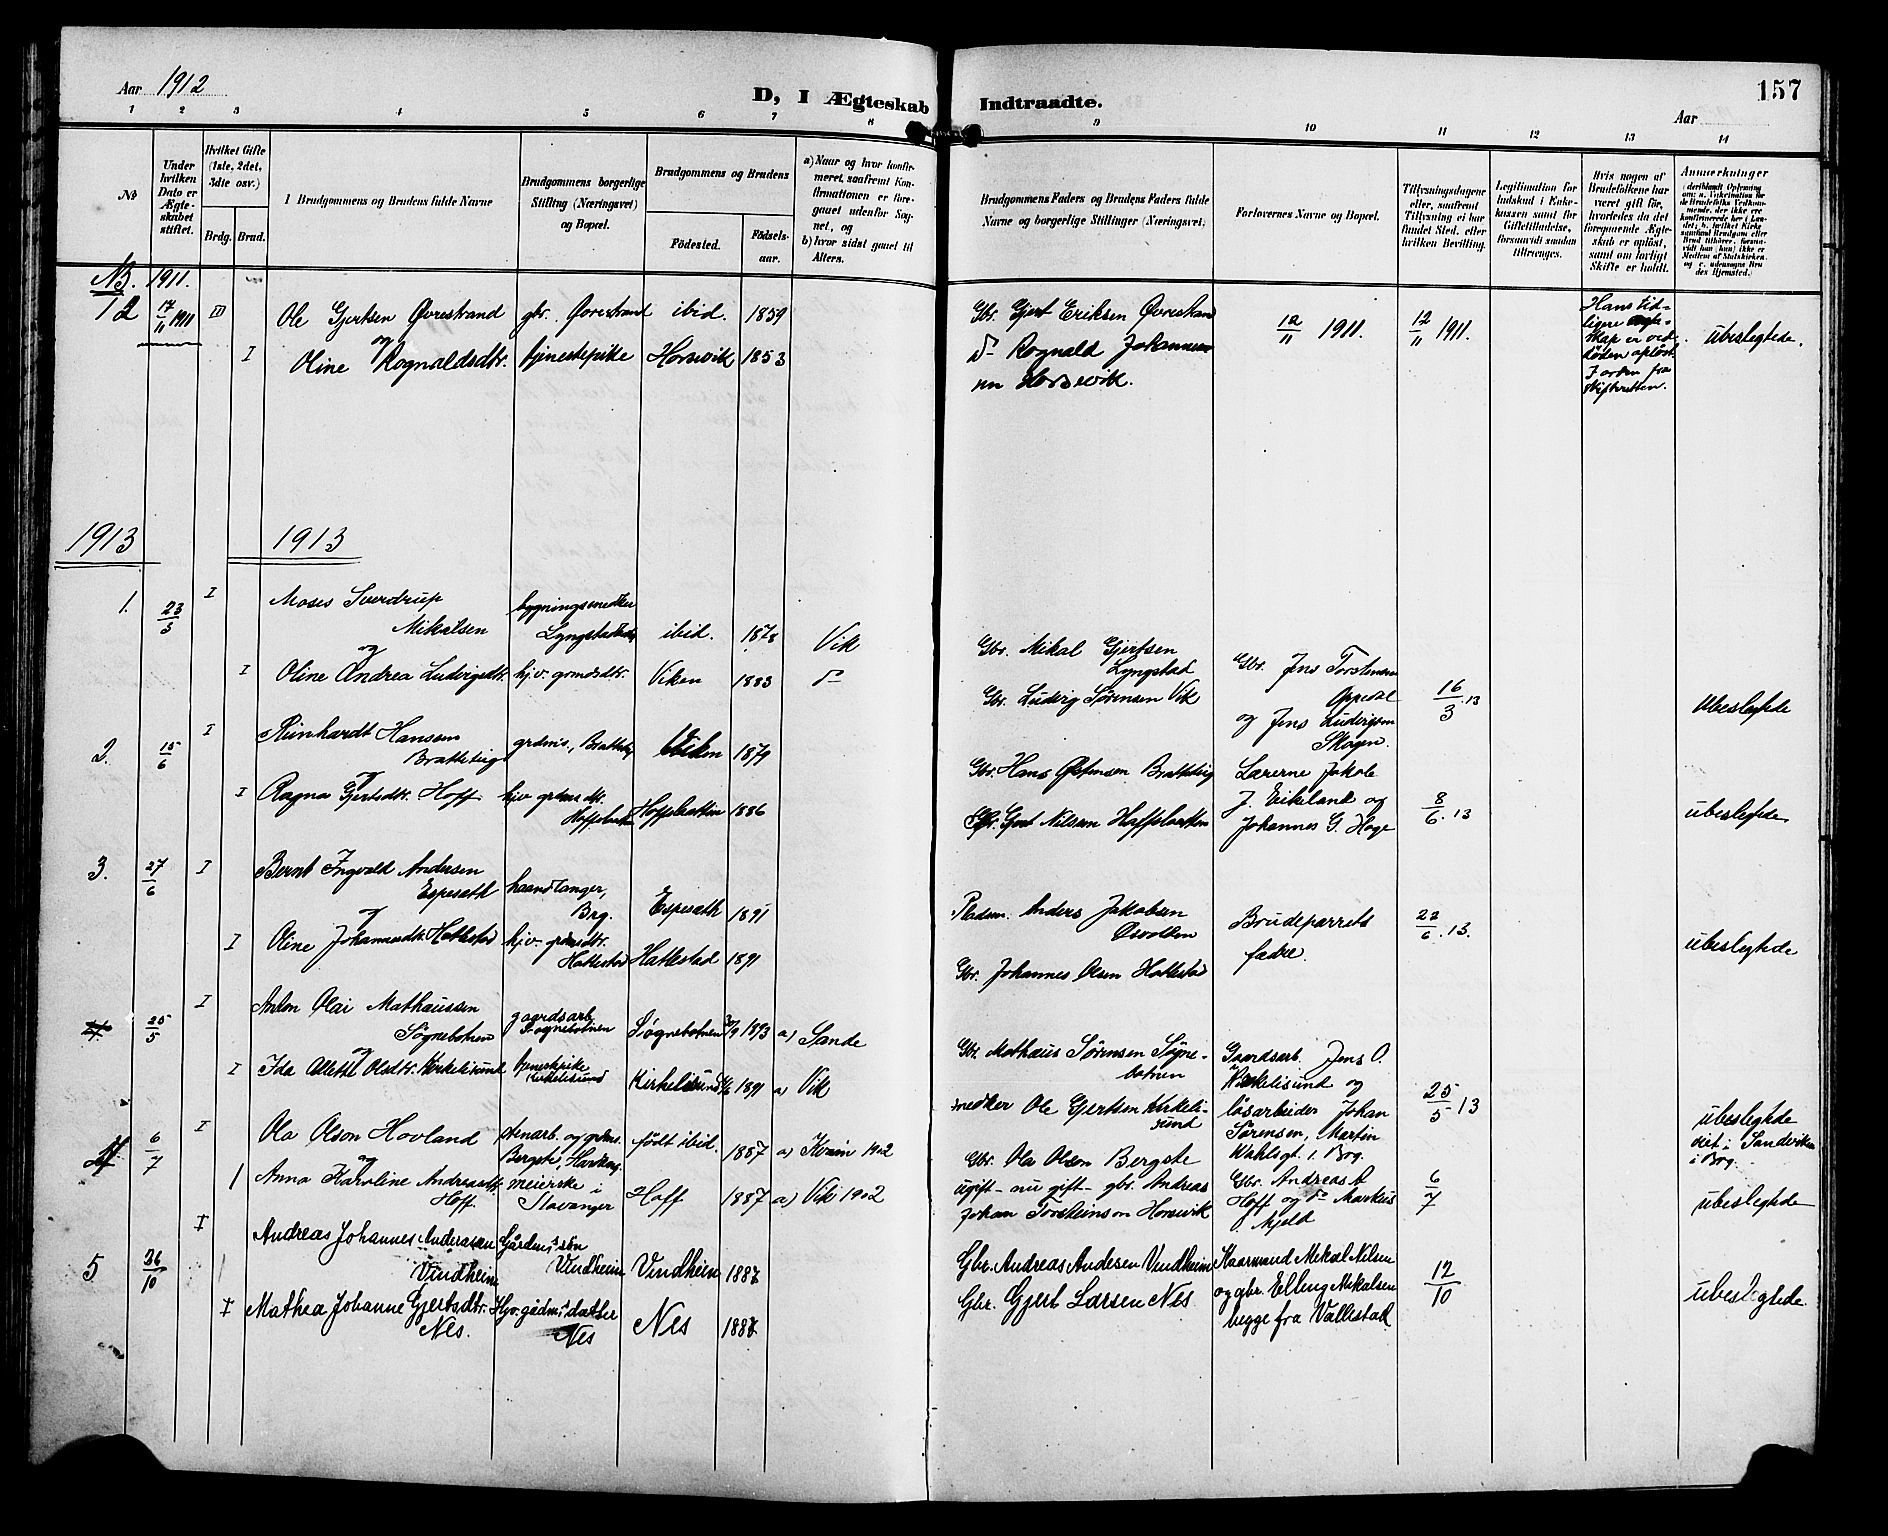 Aar 1912
D, I Ægteskab Indtraadte.
157
Aar
1 2 3 4 5 6 7 8 9 10 11 12 13 14
No
Under hvilken Dato er Ægteskabet stiftet.
Hvilket Gifte (1ste, 2det, 3die osv.)
Brdg. Brud.
I Brudgommens og Brudens fulde Navne
Brudgommens borgerlige Stilling (Næringsvei) og Bopæl.
Brudgommens og Brudens
Födested.
Födselsaar.
a) Naar og hvor konfirmeret, saafremt Konfirmationen er foregaaet udenfor Sognet, og
b) hvor sidst gaaet til Alters.
Brudgommens Faders og Brudens Faders fulde Navne og borgerlige Stillinger (Næringsvei)
Forlovernes Navne og Bopæl.
Tillysningsdagene eller, saafremt Tillysning ei har fundet Sted, efter hvilken Bevilling.
Legitimation for Indskud i Enkekassen samt for Giftetilladelse, forsaavidt saadan tiltrænges.
Hvis nogen af Brudefolkene har været gift för, hvorledes da det foregaaende Ægteskab er oplöst, samt om lovligt Skifte er holdt.
Anmærkninger
NB. 1911.
12 17/11 1911 III Ole Gjertsen Øvrestrand gbr. Øvrestrand ibid. 1859
og
I Oline Rognaldsdtr. tjenestepike Horsevik 1853
Gbr. Gjert Eriksen Øvrestrand
do Rognald Johannessen Horsevik.
12/11 1911. 12/11 1911.
Hans tidligere egteskap er ved døden opløst. I orden fra skifteretten.
ubeslegtede.
1913 1913
1. 23/3 I Moses Sverdrup Mikalsen bygningssnedker Lyngstad ibid. 1878 Vik
og
I Oline Andrea Ludvigsdtr. hjv. grmdsdtr. Viken 1883 do
Gbr. Mikal Gjertsen Lyngstad
Gbr. Ludvig Sørensen Vik
Gbr. Jens Torstensen Oppedal
og Jens Ludvigsen Skogen.
16/3.13
Ubeslegtede
2. 15/6 I Reinhardt Hansen Bratteteig grdmis., 1879
og
I Ragna Gjertsdtr. Hoff hjv. grdms dtr. Hoffsbakken 1886
Gbr. Hans Østensen Bratteteig
Gbr. Gjert Nilsen Hoffsbakken
Lærerne Jakob J. Eikeland og
Johannes G. Hage
8/6.13
ubeslegtede.
3. 27/6 I Bernt Ingvald Andersen Espesæth haandlanger, Brg. Espesæth 1891
og
I Oline Johannesdtr. Hattestad hjv. grdmsdtr. Hattestad Hattestad 1891
Pladsm. Anders Jakobsen
Gbr. Johannes Olsen Hattestad
Brudeparrets fædre.
22/6.13.
ubeslegtede
4 25/5 I Anton Olai Mathaussen Søgnebotnen gaardsarb. Søgnebotnen Søgnebotnen 1893 a) Sande
og
I Ida Alette Olsdtr. Kirkelisund tjenestepike Kirkelisund Kirkelisund 1891 a) Vik
Gbr. Mathæus Sørensen Søgnebotnen
snedker Ole Gjertsen Kirkelisund
Gaardsarb. Jens O. Kirkelisund og
løsarbeider Johan Sørensen, Martin
Wahlsgt. i Brg.
25/5 13
ubeslegtede
viet i Sandviken i Brg.
4 6/7 I Ola Olson Hovland stenarb. og grdms. født ibid. 1887 a) Kvam 1902
og
I Anna Karoline Andreasdtr. Hoff. meierske i Stavanger Hoff 1887 a) Vik 1902
Gbr. Ola Olson Bergste
ugift - nu gift - gbr. Andreas
Johan Torsteinson Horsevik
Gbr. Andreas A Hoff og do Markus
6/7
ubeslegtede
5 26/10 I Andreas Johannes Anderssen Vindheim Gårdm.s søn Vindheim Vindheim 1887
I Mathea Johanne Gjertsdtr. Nes. Hjv. gådm.s datter Nes Nes 1888
Gbr. Andreas Andesen Vindheim
Gbr. Gjert Larsen Nes
Kaarmand Mikal Nilsen
og gbr. Elling Mikalsen
begge fra Vallestad
12/10
ubeslegtede.